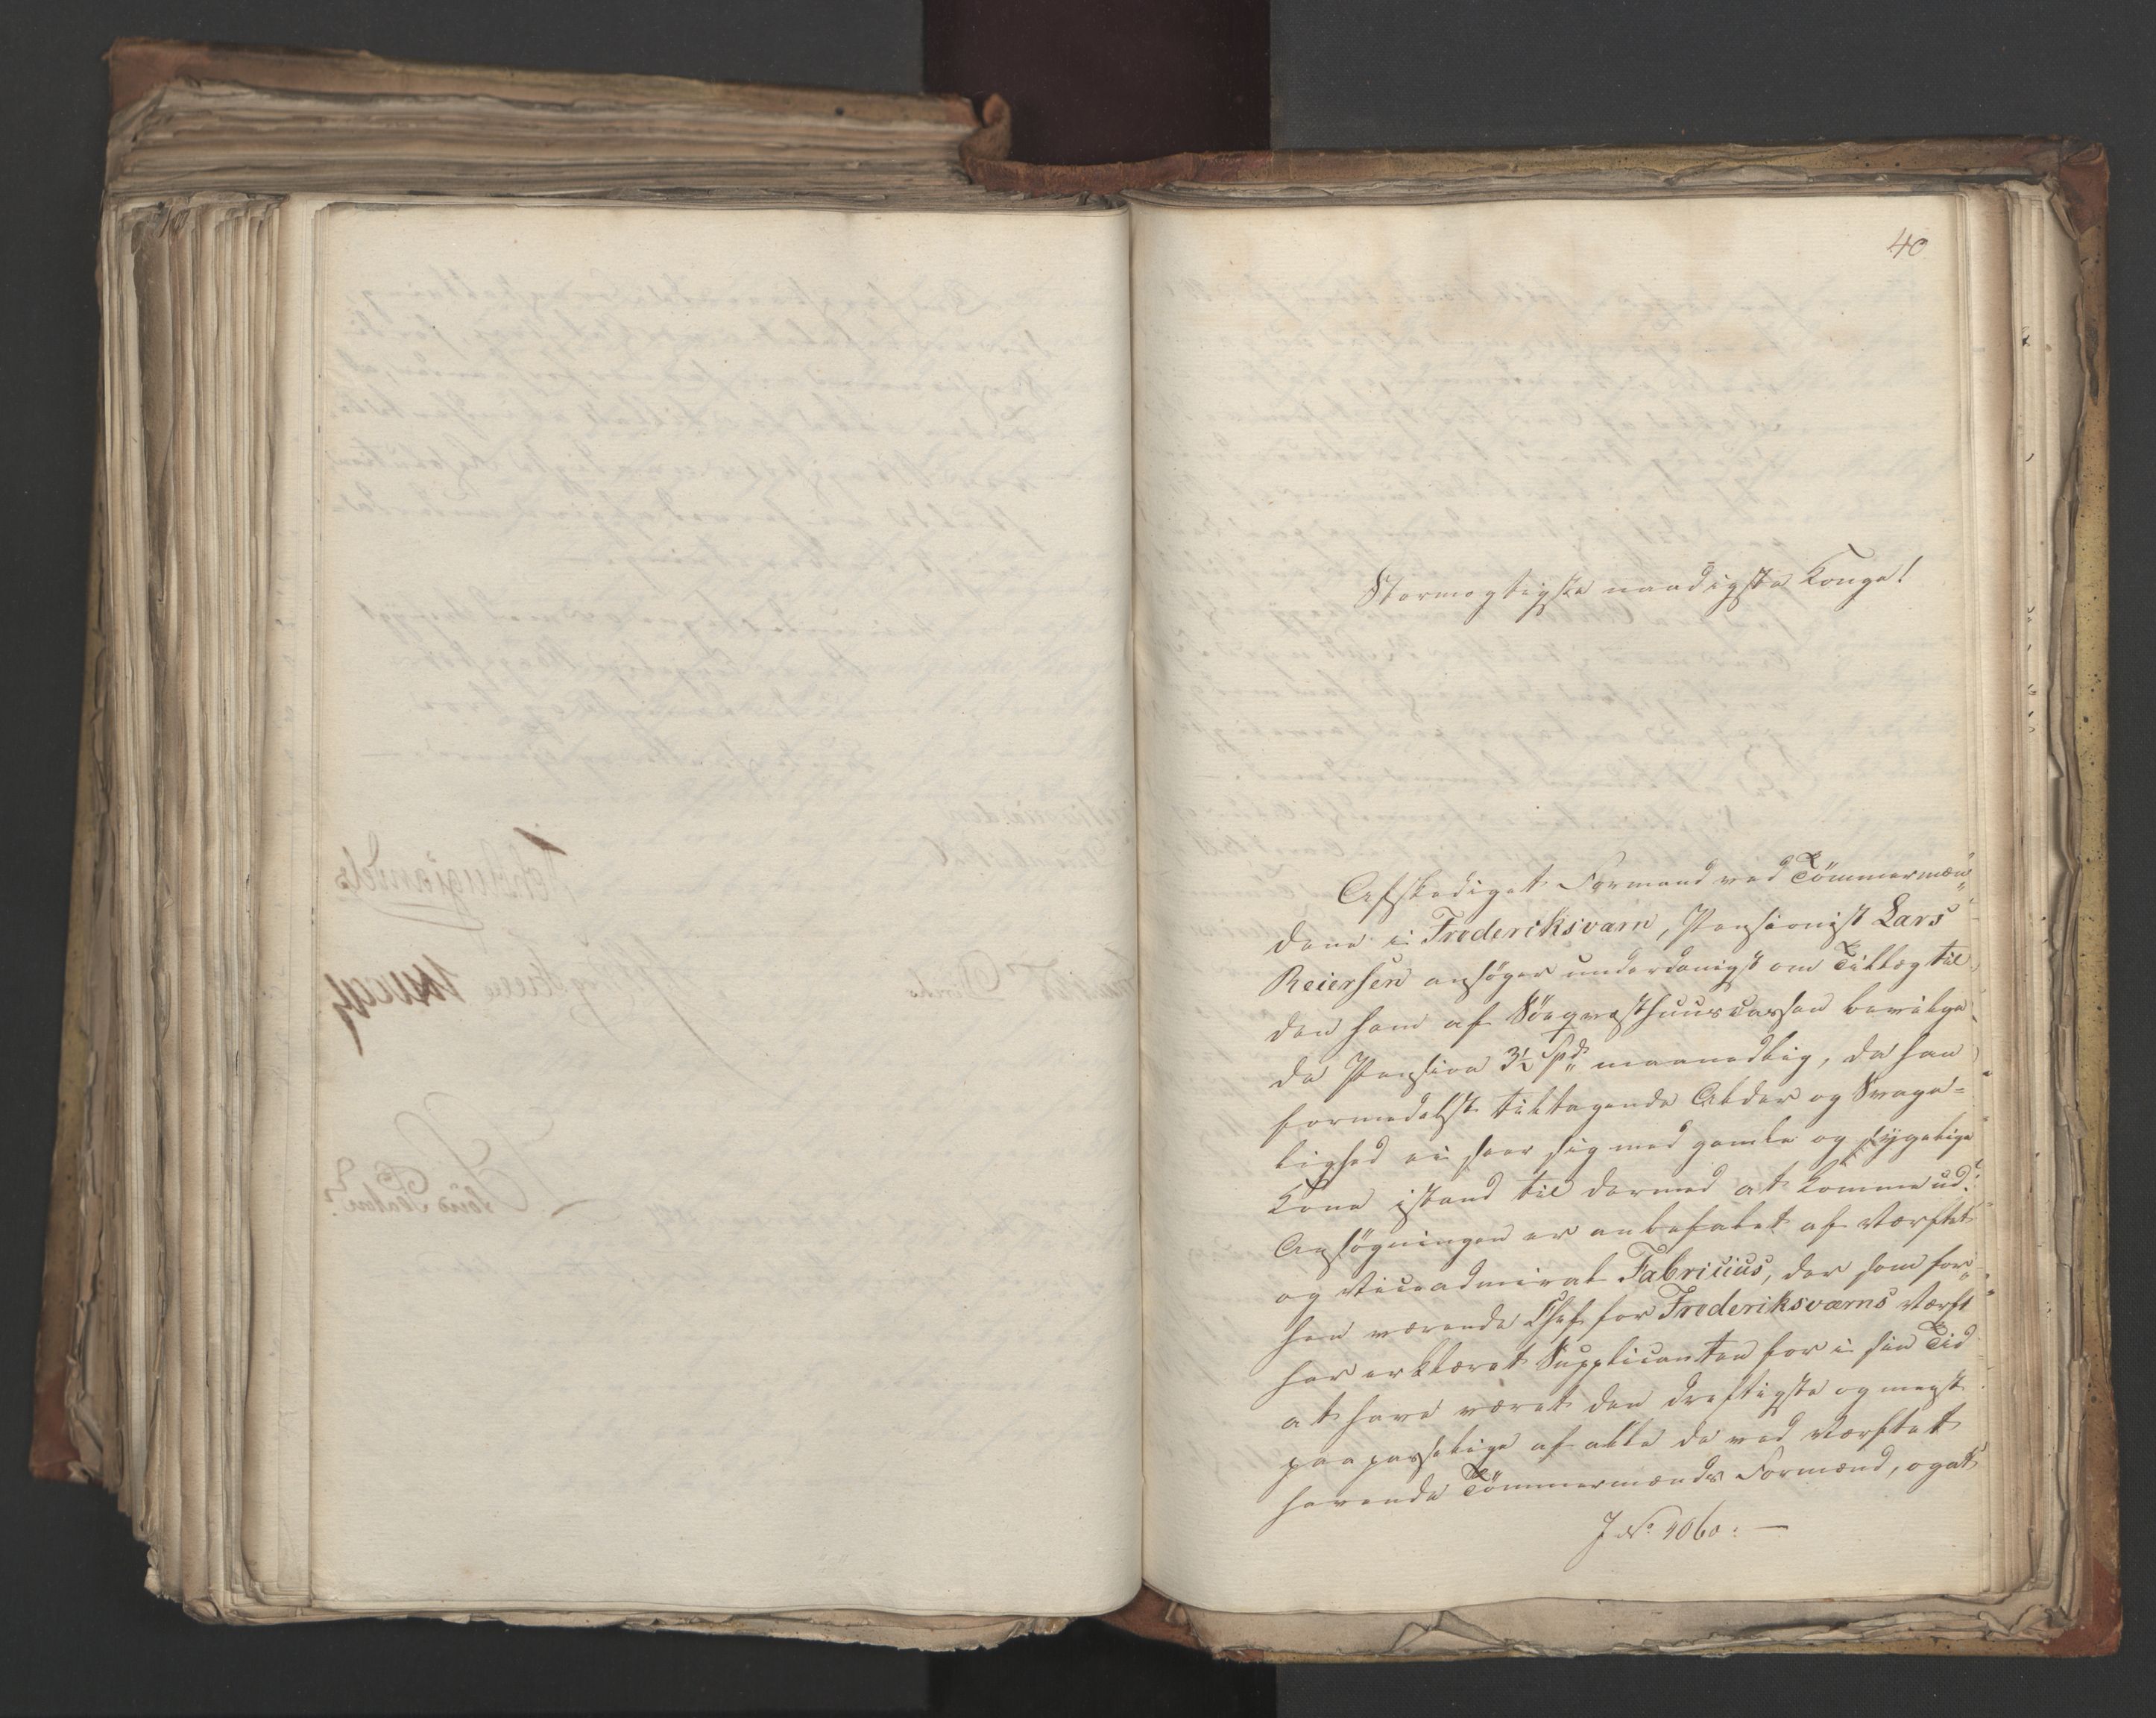 40
Stormægtigste naadigste Konge!
Afskediget Formand ved Tömmermæn„
dene i Frederiksværn, Pensionist Lars
Reiersen ansöger underdanigst om Tillæg til
den ham af Söeqvæsthuuscassen bevilge„
de Pension 3½ Spd. maanedlig, da han
formedelst tiltagende Alder og Svage=
lighed ei seer sig med gamle og sygelige
Kone istand til dermed at komme ud.
Ansögningen er anbefalet af Værftet
og Viceadmiral Fabricius, der som for„
hen værende Chef for Frederiksværns Værft
har erklæret Supplicanten for i sin Tid
at have været den dreftigste og meest
paapasselige af alle de ved Værftet
havende Tömmermænds Formænd, og at
J No. 4060. —